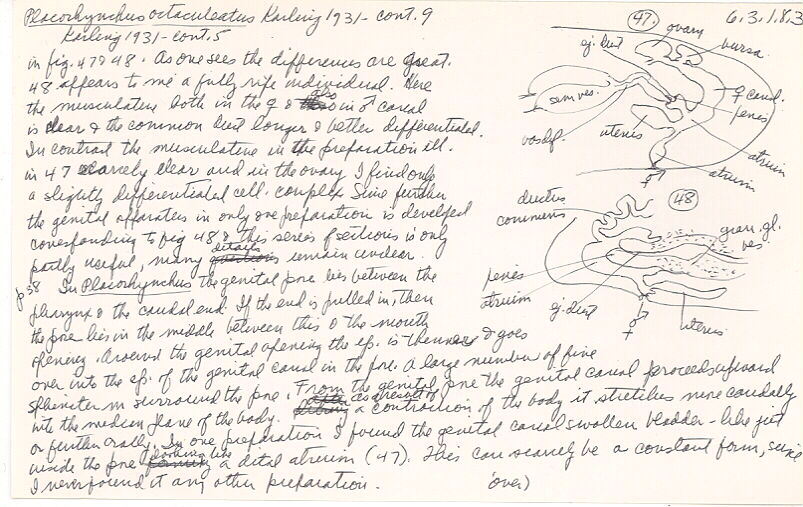 Placorhynchus octaculeatus Karling 1931 - cont. 9
6.3.1.8.3
Karling 1931 - cont. 5
in fig. 47 & 48. As one sees the differences are great.
48 appears to me a fully ripe individual. Here
the musculature both in the ♀ & also in ♂ canal
is clear & the common duct longer & better differentiated.
In contrast the musculature in the preparation ill.
in 47 scarcely clear and in the ovary I find only
a slightly differentiated cell complex. Since further
the genital apparatus in only one preparation is developed
corresponding to fig 48 & this series of sections is only
partly useful, many details remain unclear.
p38 In Placorhynchus the genital pore lies between the
pharynx & the caudal end. If the end is pulled in, then
the pore lies in the middle between this & the mouth
opening. Around the genital opening the ep. is thinner & goes
over into the ep. of the genital canal in the pore. A large number of fine
sphincter m surround the pore. From the genital pore the genital canal proceeds upward
into the median plane of the body. as a result of a contraction of the body it stretches more caudally
or further orally. In one preparation I found the genital canal swollen bladder-like just
inside the pore looking like a distal atrium (47). This can scarcely be a constant form, since
I never found it any other preparation.
(over)
47.
ovary
bursa
ej. duct
♀ canal
sem ves.
penis
vasdf.
uterus
atrium
atrium
♀
48
ductus
communis
gran. gl.
ves
penis
atrium
ej. duct
♂
♀
uterus